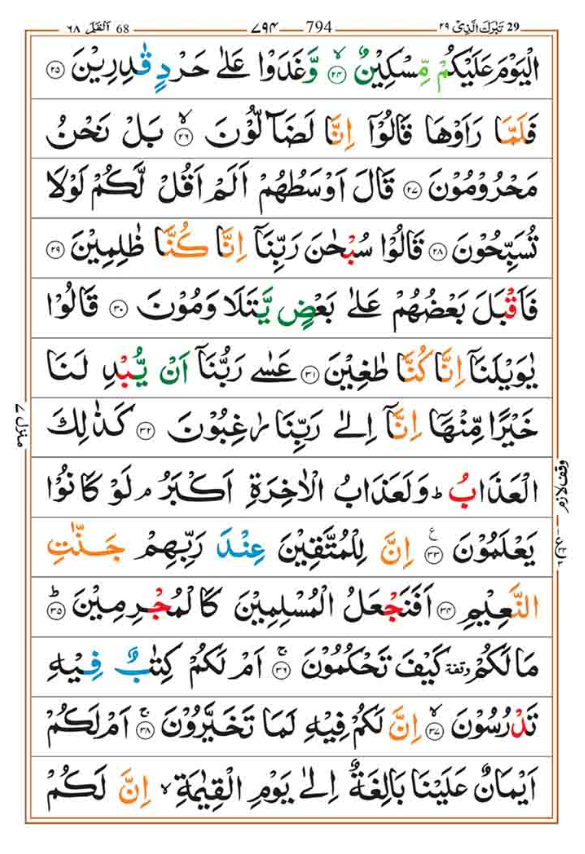 29 تَبٰرَكَ الَّذِیْ ٢٩ 794 ٧٩٤ 68 اَلْقَلَم ٦٨
الْیَوْمَ عَلَیْكُمْ مِّسْكِیْنٌ ۙ﴿۲۴﴾ وَّغَدَوْا عَلٰی حَرْدٍ قٰدِرِیْنَ ﴿۲۵﴾
فَلَمَّا رَاَوْهَا قَالُوْۤا اِنَّا لَضَآلُّوْنَ ۙ﴿۲۶﴾ بَلْ نَحْنُ
مَحْرُوْمُوْنَ ﴿۲۷﴾ قَالَ اَوْسَطُهُمْ اَلَمْ اَقُلْ لَّكُمْ لَوْلَا
تُسَبِّحُوْنَ ﴿۲۸﴾ قَالُوْا سُبْحٰنَ رَبِّنَاۤ اِنَّا كُنَّا ظٰلِمِیْنَ ﴿۲۹﴾
فَاَقْبَلَ بَعْضُهُمْ عَلٰی بَعْضٍ یَّتَلَاوَمُوْنَ ﴿۳۰﴾ قَالُوْا
یٰوَیْلَنَاۤ اِنَّا كُنَّا طٰغِیْنَ ﴿۳۱﴾ عَسٰی رَبُّنَاۤ اَنْ یُّبْدِلَنَا
خَیْرًا مِّنْهَاۤ اِنَّاۤ اِلٰی رَبِّنَا رٰغِبُوْنَ ﴿۳۲﴾ كَذٰلِكَ
الْعَذَابُ ؕ وَلَعَذَابُ الْاٰخِرَةِ اَكْبَرُ ۘ لَوْ كَانُوْا
یَعْلَمُوْنَ ﴿۳۳﴾ اِنَّ لِلْمُتَّقِیْنَ عِنْدَ رَبِّهِمْ جَنّٰتِ
النَّعِیْمِ ﴿۳۴﴾ اَفَنَجْعَلُ الْمُسْلِمِیْنَ كَالْمُجْرِمِیْنَ ﴿ؕ۳۵﴾
مَا لَكُمْ ٝ كَیْفَ تَحْكُمُوْنَ ۚ﴿۳۶﴾ اَمْ لَكُمْ كِتٰبٌ فِیْهِ
تَدْرُسُوْنَ ۙ﴿۳۷﴾ اِنَّ لَكُمْ فِیْهِ لَمَا تَخَیَّرُوْنَ ۚ﴿۳۸﴾ اَمْ لَكُمْ
اَیْمَانٌ عَلَیْنَا بَالِغَةٌ اِلٰی یَوْمِ الْقِیٰمَةِ ۙ اِنَّ لَكُمْ
منزل ٧
وقف لازم